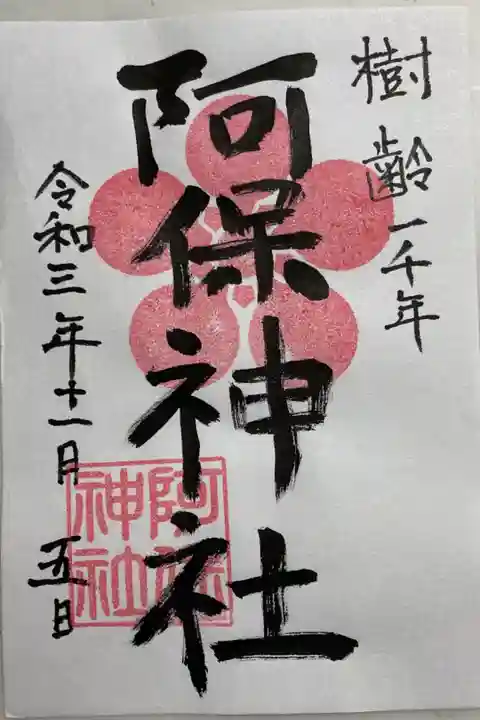 樹齢一千年
阿保神社
阿保神社
令和三年十一月五日